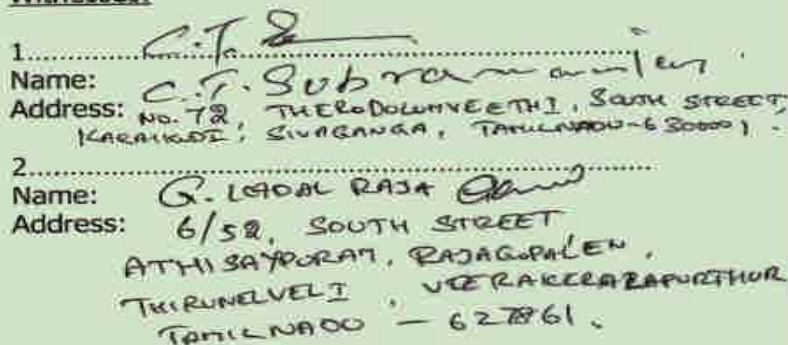 Witnesses:
1. C.T. S
Name: C.T. Subramanian
Address: NO. 72, THERODOLUMVEETHI, SOUTH STREET,
KARAIKUDI, SIVAGANGA, TAMILNADU-630001.
2.
Name: G. LADAL RAJA
Address: 6/52, SOUTH STREET
ATHISAYPURAM, RAJAGOPALEN,
THIRUNELVELI,
TAMILNADU - 627861.